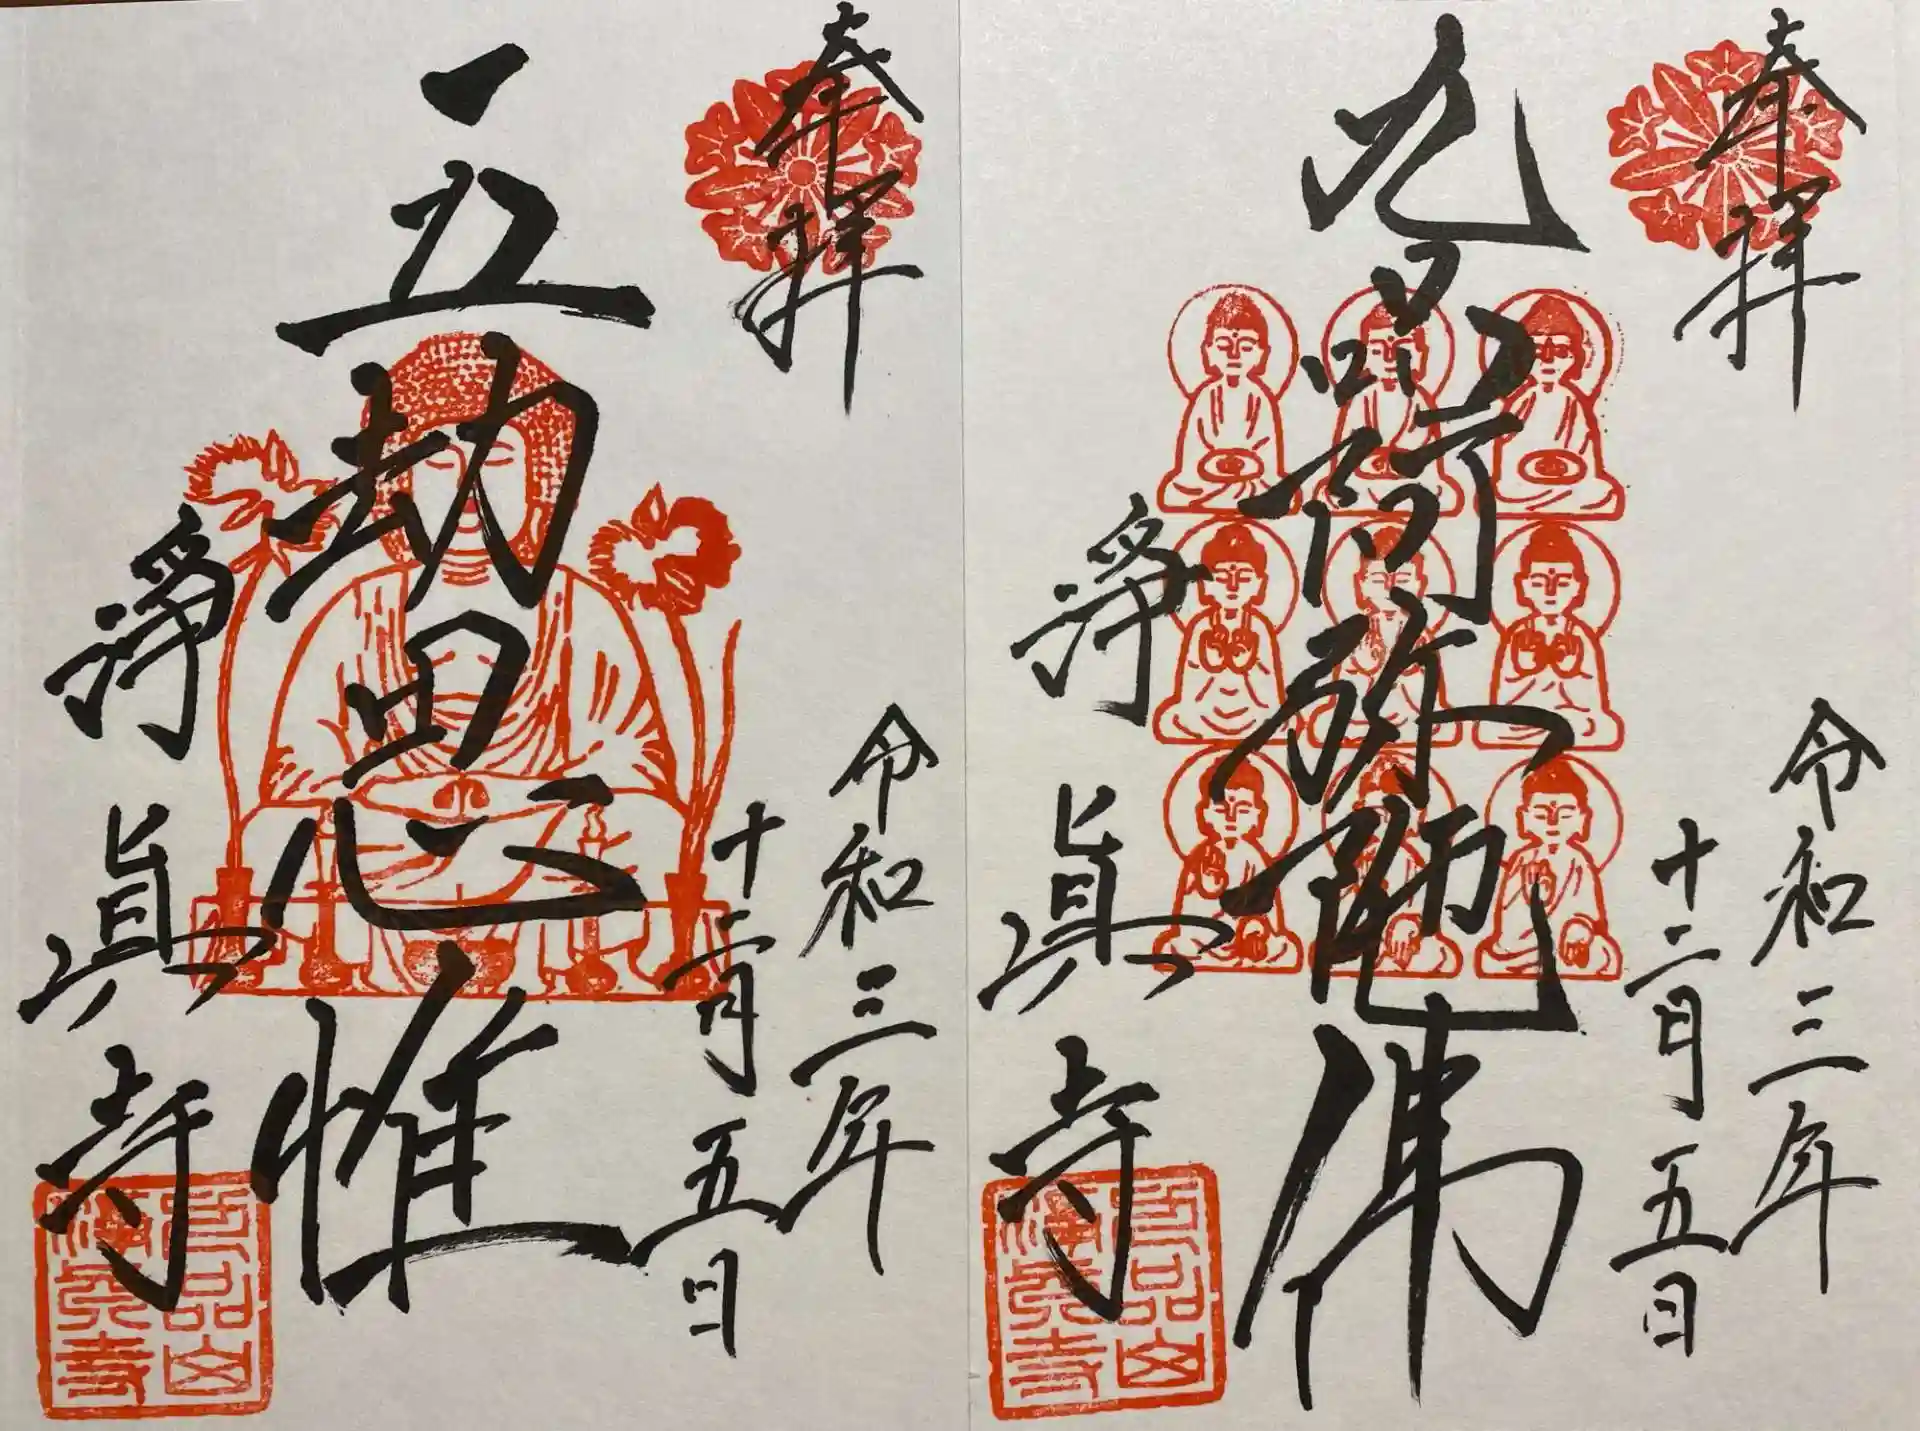 奉拝
令和三年
十二月五日
九品阿弥陀佛
淨眞寺
九品山
淨眞寺
奉拝
令和三年
十二月五日
五劫思惟
淨眞寺
九品山
淨眞寺